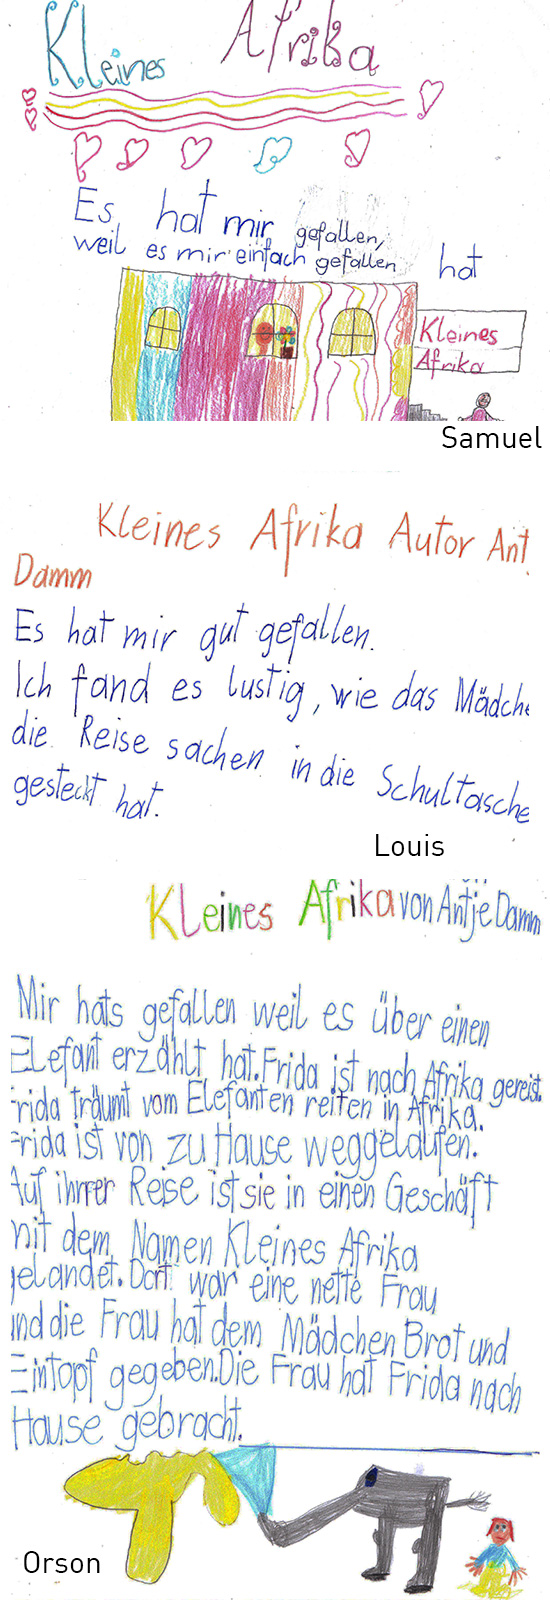 Kleines Afrika
Es hat mir gefallen,
weil es mir einfach gefallen hat
Kleines
Afrika
Samuel
Kleines Afrika Autor Ant
Damm
Es hat mir gut gefallen.
Ich fand es lustig, wie das Mädche
die Reise sachen in die Schultasche
gesteckt hat.
Louis
Kleines Afrika von Antje Damm
Mir hats gefallen weil es über einen
Elefant erzählt hat. Frida ist nach Afrika gereist.
Frida träumt vom Elefanten reiten in Afrika.
Frida ist von zu Hause weggelaufen.
Auf ihrrer Reise ist sie in einen Geschäft
mit dem Namen Kleines Afrika
gelandet. Dort war eine nette Frau
und die Frau hat dem Mädchen Brot und
Eintopf gegeben. Die Frau hat Frida nach
Hause gebracht.
Orson